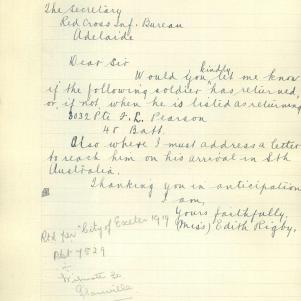 The Secretary
Red Cross Inf. Bureau
Adelaide
Dear Sir
Would you kindly let me know
if the following soldier has returned,
or, if not, when he is listed as returning
3032 Pte F. L. Pearson
48 Batt.
Also where I must address a letter
to reach him on his arrival in Sth
Australia.
Thanking you in anticipation
I am,
Yours faithfully,
(Miss) Edith Rigby.
Rtd per "City of Exeter" 1919
7529
Granville